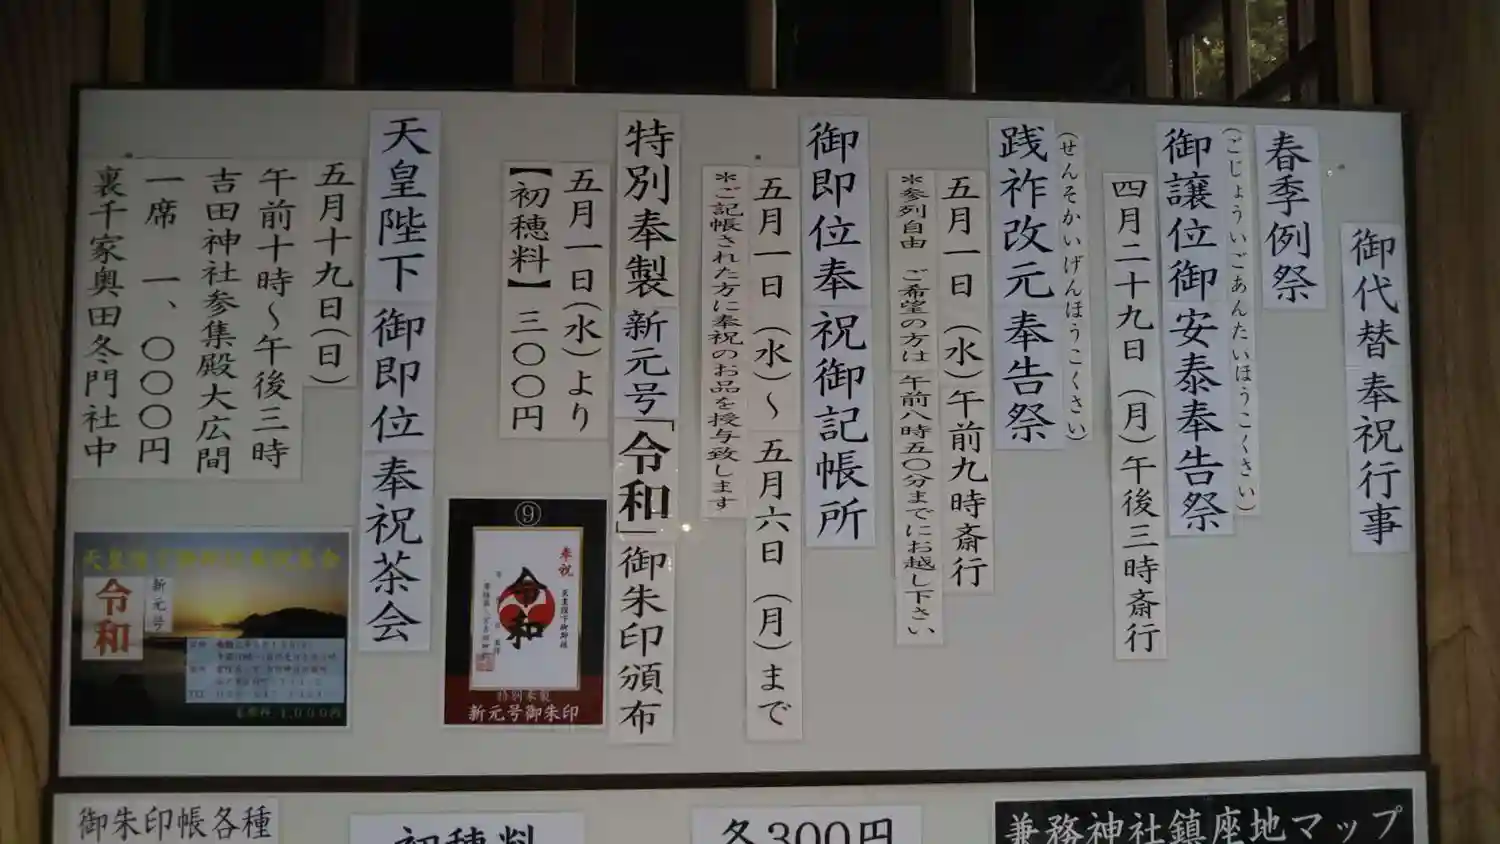 御代替 奉祝行事
春季例祭
(ごじょういごあんたいほうこくさい)
御譲位御安泰奉告祭
四月二十九日(月)午後三時斎行
(せんそかいげんほうこくさい)
践祚改元奉告祭
五月一日(水)午前九時斎行
*参列自由 ご希望の方は 午前八時五〇分までにお越し下さい
御即位奉祝御記帳所
五月一日(水)～五月六日(月)まで
*ご記帳された方に奉祝のお品を授与致します
特別奉製 新元号「令和」御朱印頒布
五月一日(水)より
【初穂料】三〇〇円
天皇陛下 御即位 奉祝茶会
五月十九日(日)
午前十時～午後三時
吉田神社参集殿大広間
一席 一、〇〇〇円
裏千家奥田冬門社中
⑨
奉祝
令和
特別奉製
新元号御朱印
新元号
令和
御朱印帳各種
初穂料
各300円
兼務神社鎮座地マップ